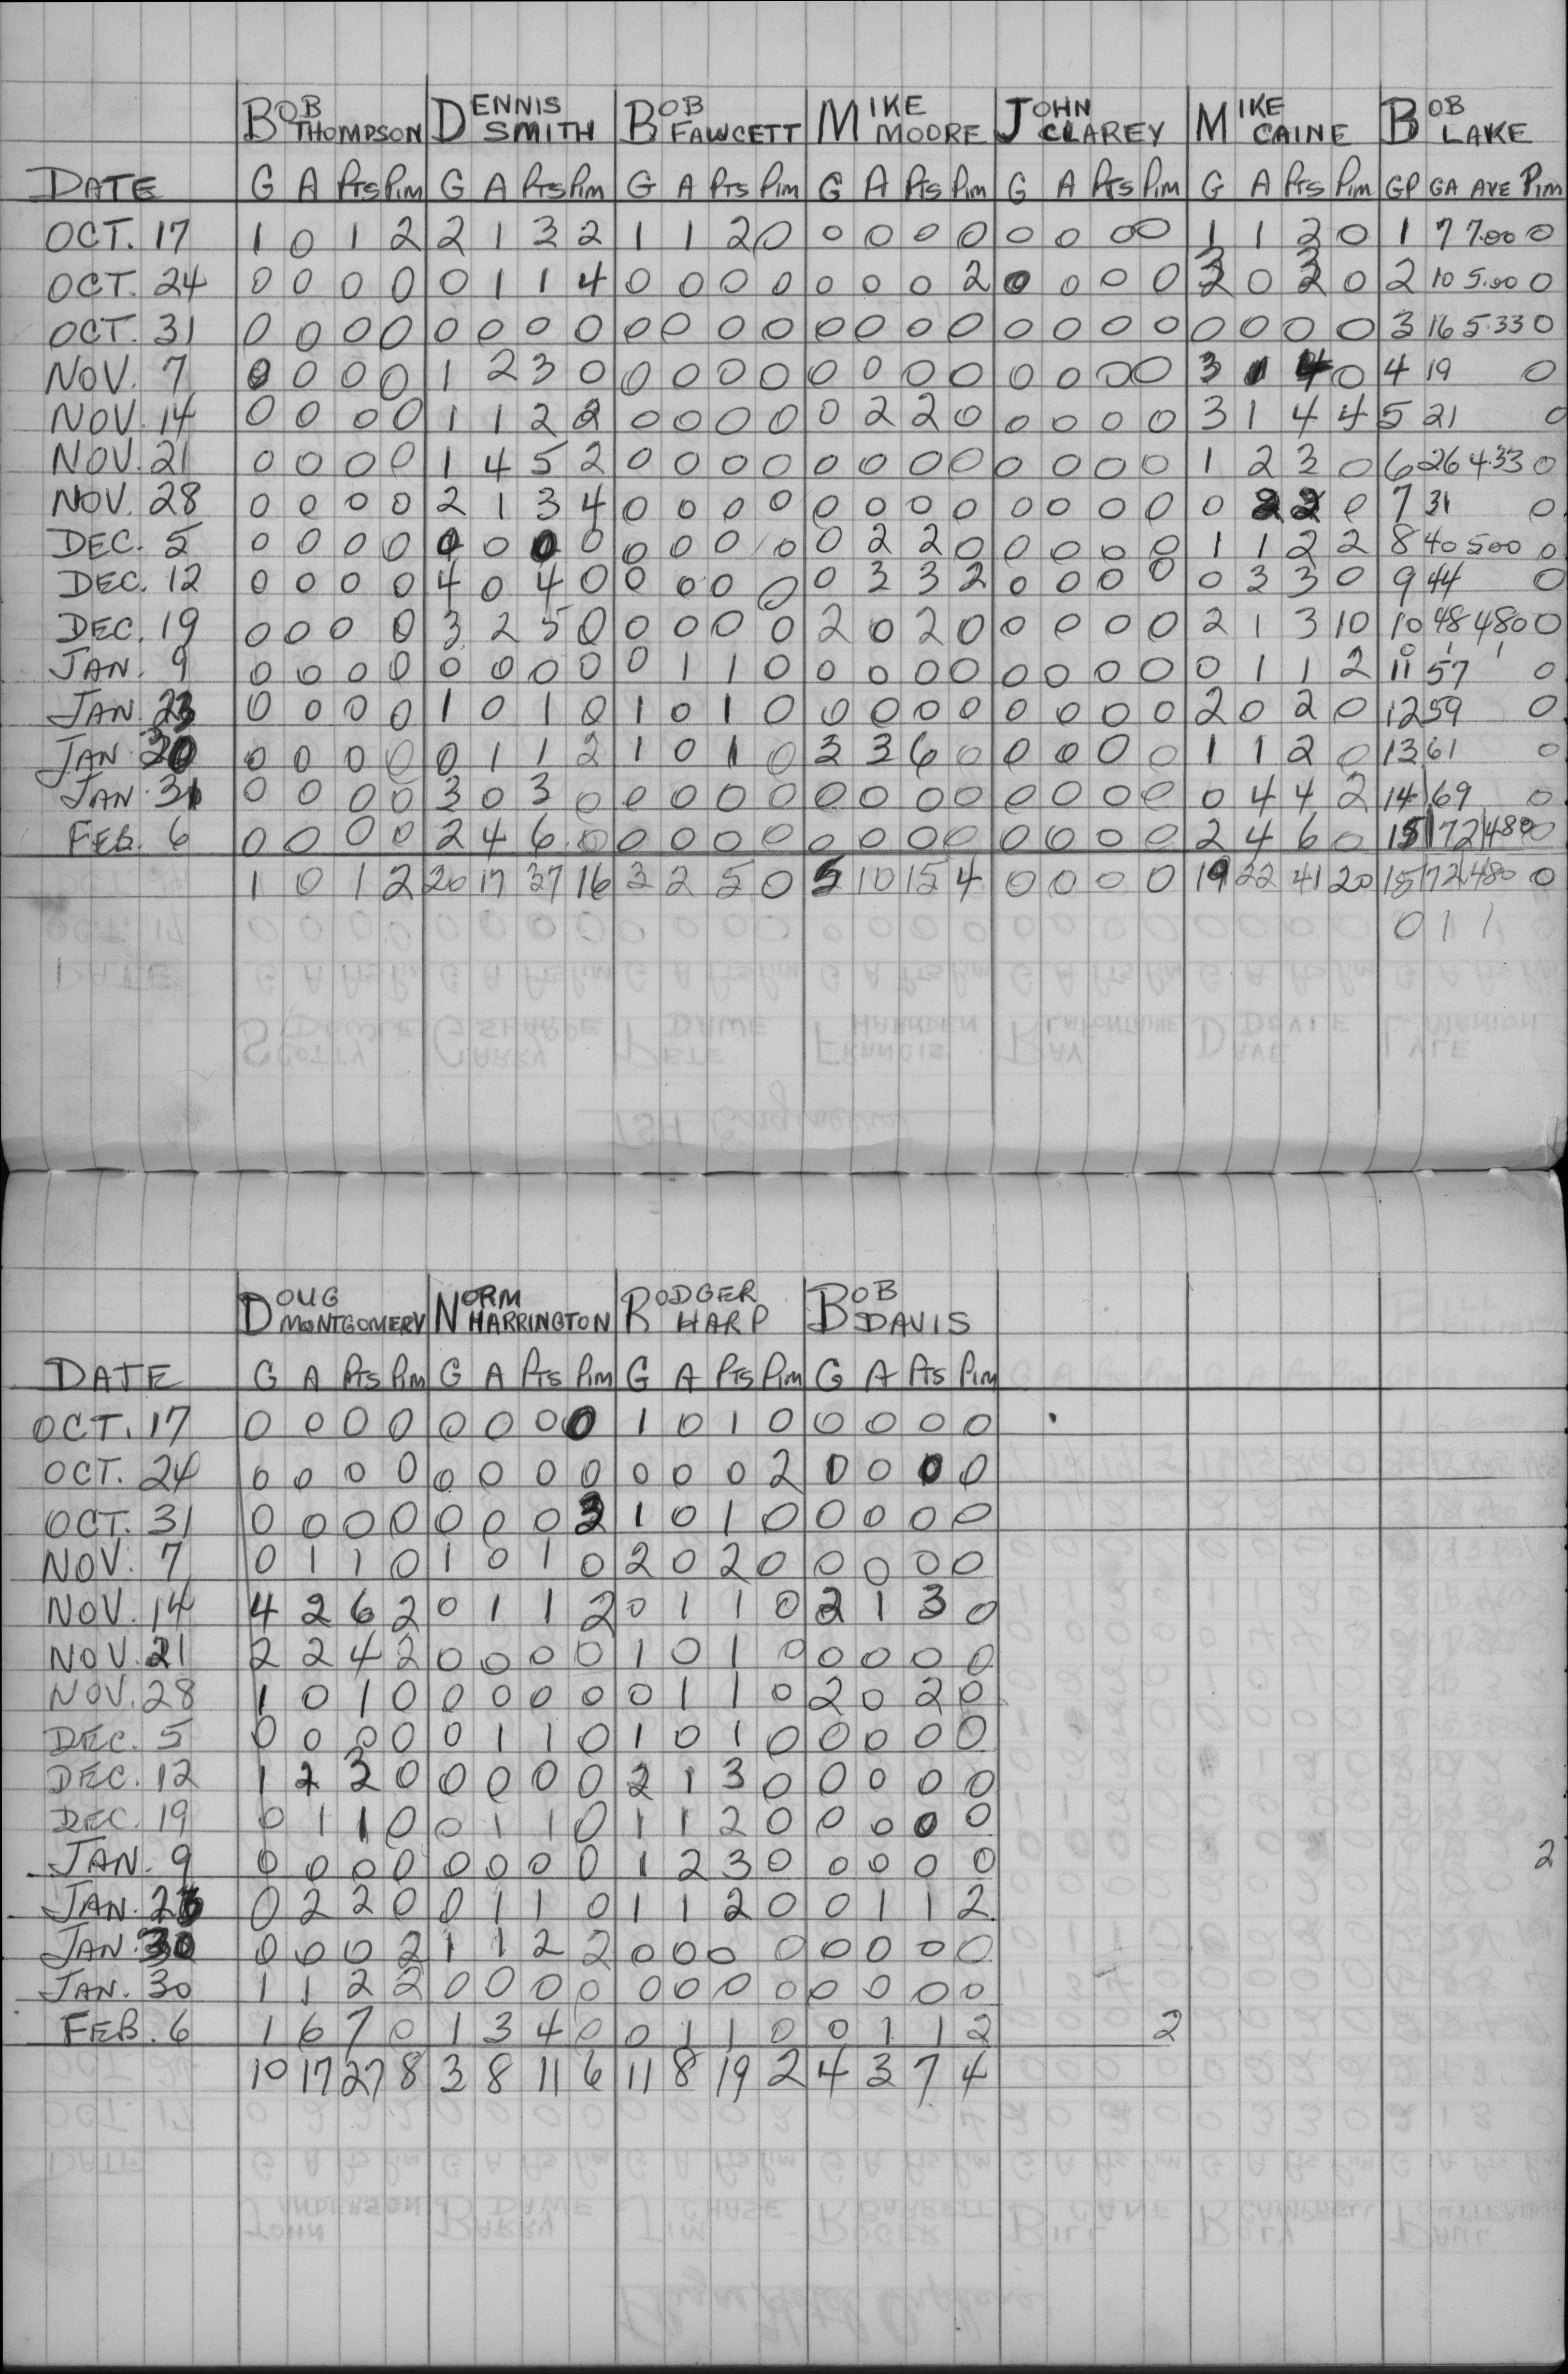 BOB THOMPSON DENNIS SMITH BOB FAWCETT MIKE MOORE JOHN CLAREY MIKE CAINE BOB LAKE
DATE G A Pts Pim G A Pts Pim G A Pts Pim G A Pts Pim G A Pts Pim G A Pts Pim GP GA AVE Pim
OCT. 17 1 0 1 2 2 1 3 2 1 1 2 0 0 0 0 0 0 0 0 0 1 1 2 0 1 7 7.00 0
OCT. 24 0 0 0 0 0 1 1 4 0 0 0 0 0 0 0 2 0 0 0 0 3 0 3 0 2 10 5.00 0
OCT. 31 0 0 0 0 0 0 0 0 0 0 0 0 0 0 0 0 0 0 0 0 0 0 0 0 3 16 5.33 0
NOV. 7 0 0 0 0 1 2 3 0 0 0 0 0 0 0 0 0 0 0 0 0 3 1 4 0 4 19 0
NOV. 14 0 0 0 0 1 1 2 2 0 0 0 0 0 2 2 0 0 0 0 0 3 1 4 4 5 21 0
NOV. 21 0 0 0 0 1 4 5 2 0 0 0 0 0 0 0 0 0 0 0 0 1 2 3 0 6 26 4.33 0
NOV. 28 0 0 0 0 2 1 3 4 0 0 0 0 0 0 0 0 0 0 0 0 0 2 2 0 7 31 0
DEC. 5 0 0 0 0 0 0 0 0 0 0 0 0 0 2 2 0 0 0 0 0 1 1 2 2 8 40 500 0
DEC. 12 0 0 0 0 4 0 4 0 0 0 0 0 0 3 3 2 0 0 0 0 0 3 3 0 9 44 0
DEC. 19 0 0 0 0 3 2 5 0 0 0 0 0 2 0 2 0 0 0 0 0 2 1 3 10 10 48 480 0
0 1 1
JAN. 9 0 0 0 0 0 0 0 0 0 1 1 0 0 0 0 0 0 0 0 0 0 1 1 2 11 57 0
JAN 23 0 0 0 0 1 0 1 0 1 0 1 0 0 0 0 0 0 0 0 0 2 0 2 0 12 59 0
JAN 30 0 0 0 0 0 1 1 2 1 0 1 0 3 3 6 0 0 0 0 0 1 1 2 0 13 61 0
JAN. 31 0 0 0 0 3 0 3 0 0 0 0 0 0 0 0 0 0 0 0 0 0 4 4 2 14 69 0
FEB. 6 0 0 0 0 2 4 6 0 0 0 0 0 0 0 0 0 0 0 0 0 2 4 6 0 15 72 480 0
1 0 1 2 20 17 37 16 3 2 5 0 5 10 15 4 0 0 0 0 19 22 41 20 15 72 480 0
0 1 1
DOUG MONTGOMERY NORM HARRINGTON RODGER HARP BOB DAVIS
DATE G A Pts Pim G A Pts Pim G A Pts Pim G A Pts Pim
OCT. 17 0 0 0 0 0 0 0 0 1 0 1 0 0 0 0 0
OCT. 24 0 0 0 0 0 0 0 0 0 0 0 2 0 0 0 0
OCT. 31 0 0 0 0 0 0 0 2 1 0 1 0 0 0 0 0
NOV. 7 0 1 1 0 1 0 1 0 2 0 2 0 0 0 0 0
NOV. 14 4 2 6 2 0 1 1 2 0 1 1 0 2 1 3 0
NOV. 21 2 2 4 2 0 0 0 0 1 0 1 0 0 0 0 0
NOV. 28 1 0 1 0 0 0 0 0 0 1 1 0 2 0 2 0
DEC. 5 0 0 0 0 0 1 1 0 1 0 1 0 0 0 0 0
DEC. 12 1 2 3 0 0 0 0 0 2 1 3 0 0 0 0 0
DEC. 19 0 1 1 0 0 1 1 0 1 1 2 0 0 0 0 0
JAN. 9 0 0 0 0 0 0 0 0 1 2 3 0 0 0 0 0 2
JAN. 23 0 2 2 0 0 1 1 0 1 1 2 0 0 1 1 2
JAN. 30 0 0 0 2 1 1 2 2 0 0 0 0 0 0 0 0
JAN. 30 1 1 2 2 0 0 0 0 0 0 0 0 0 0 0 0
FEB. 6 1 6 7 0 1 3 4 0 0 1 1 0 0 1 1 2 2
10 17 27 8 3 8 11 6 11 8 19 2 4 3 7 4